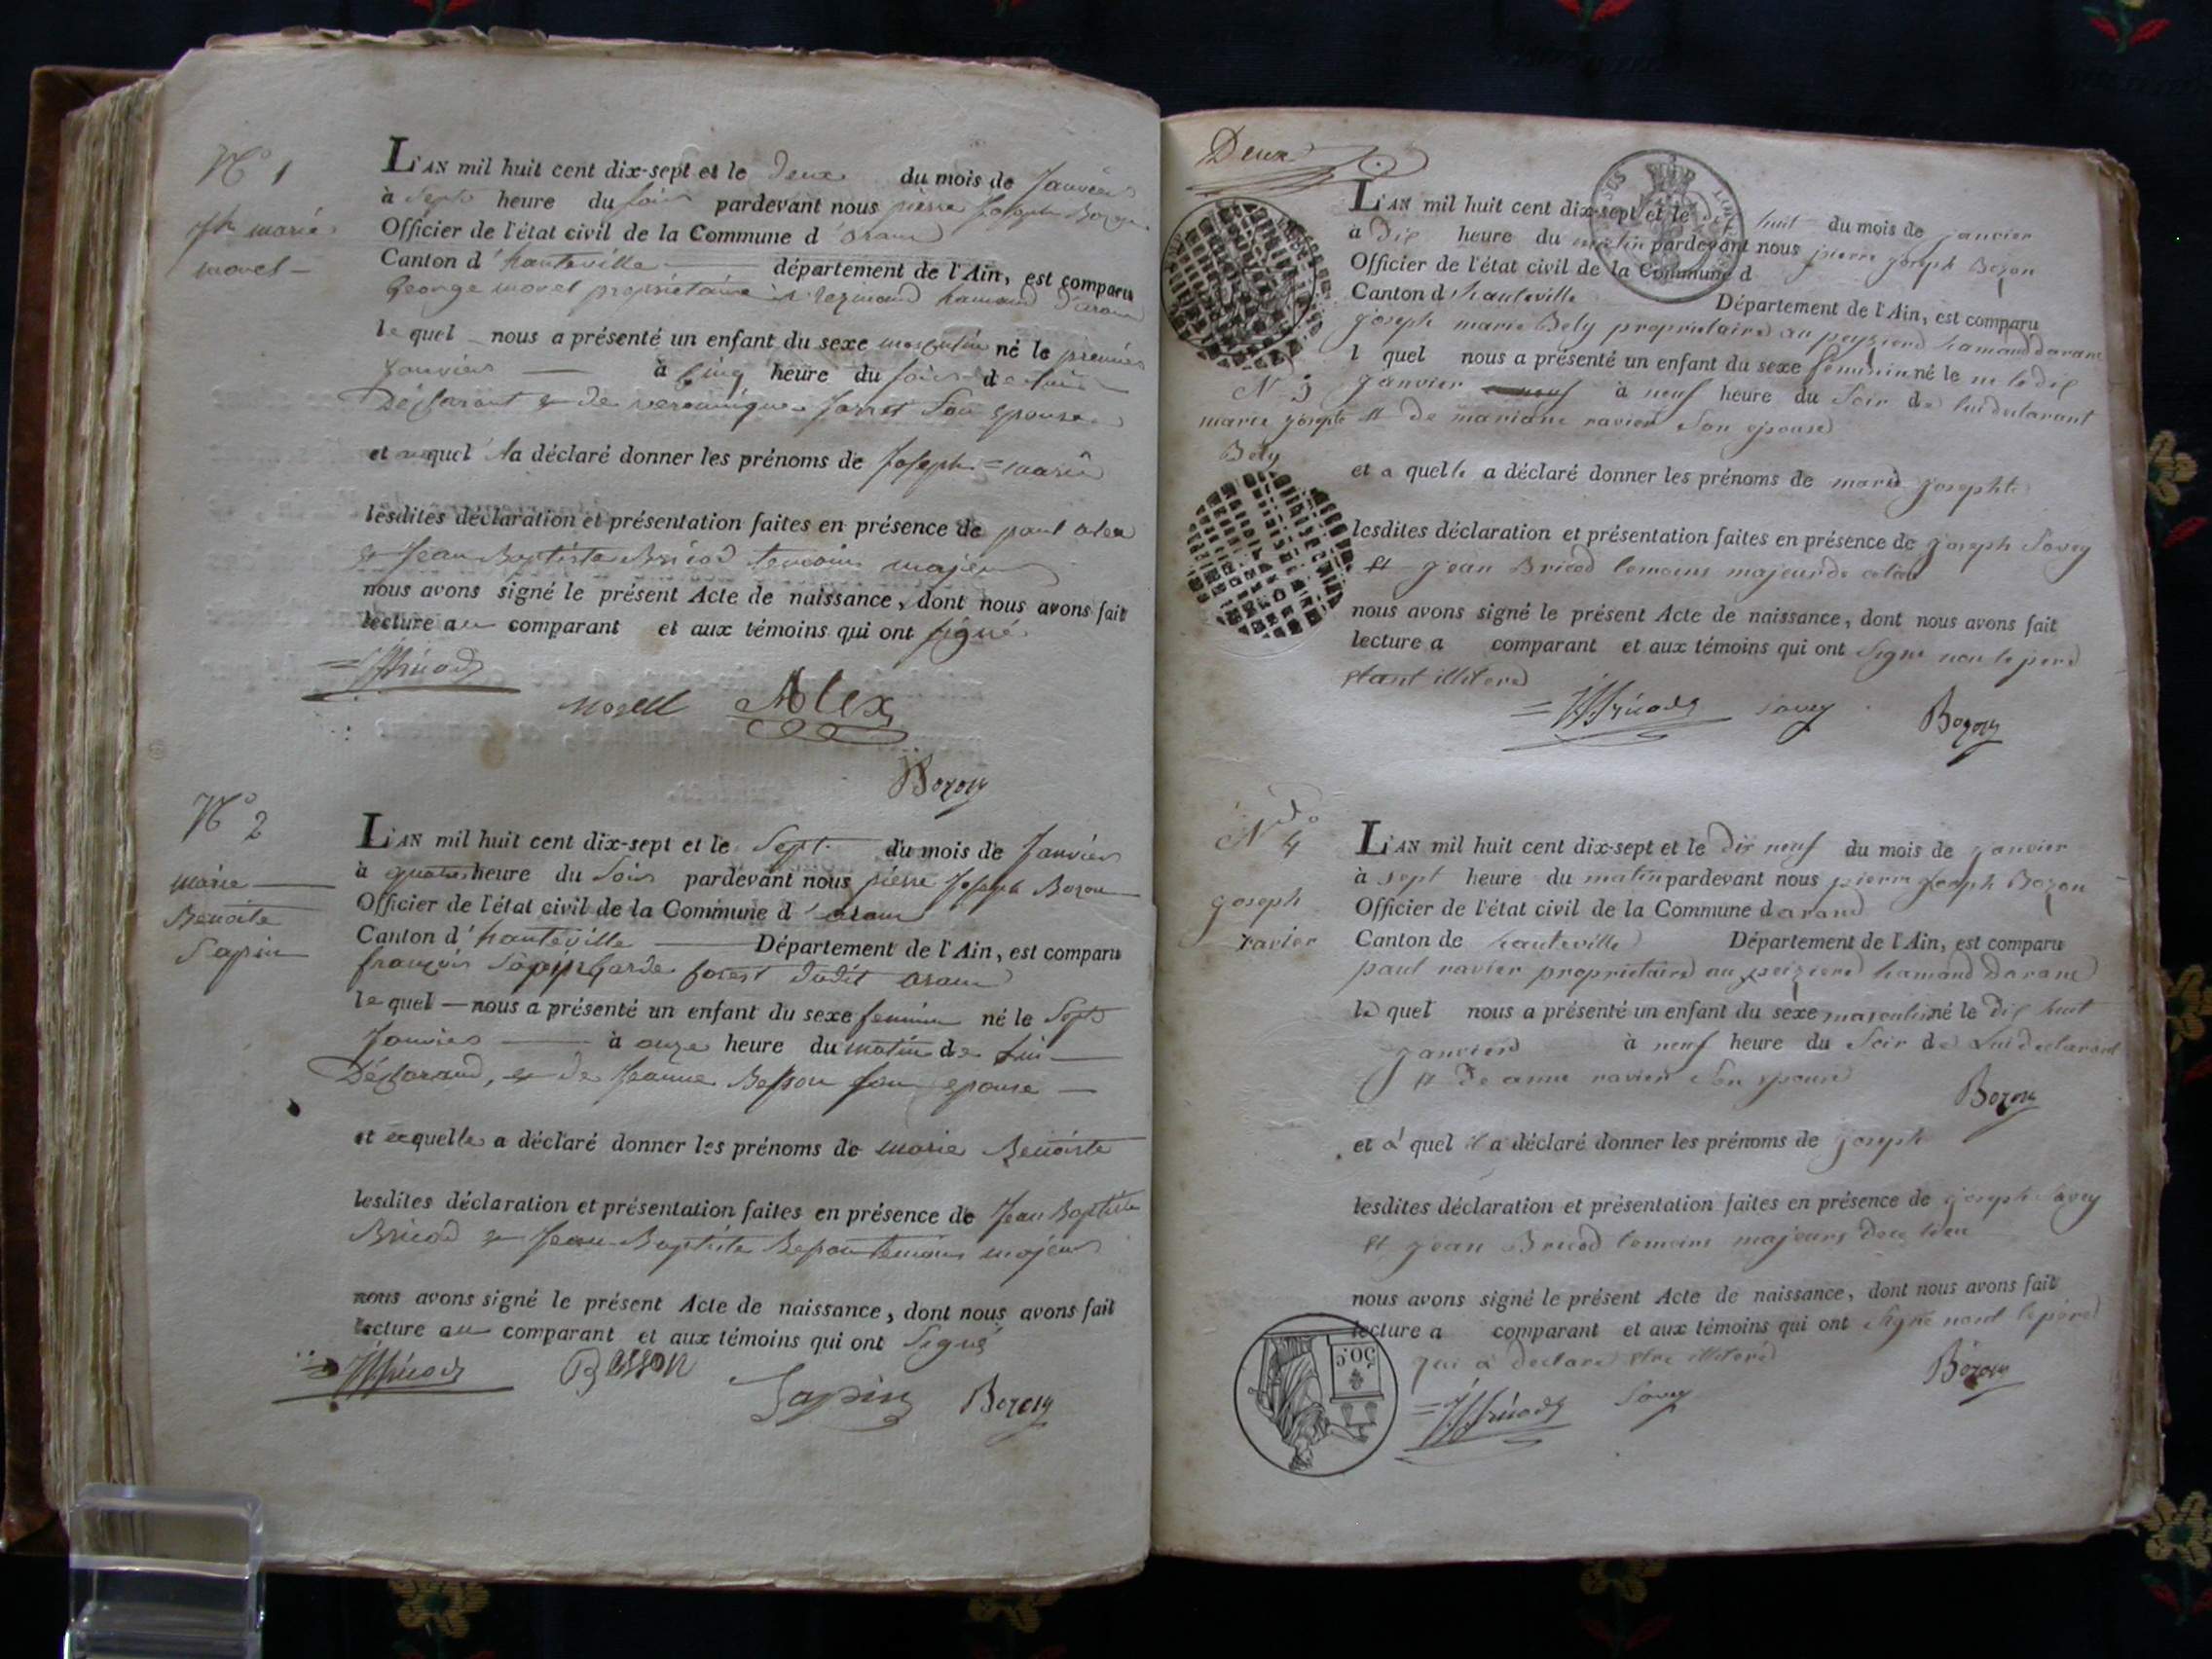 N° 1
jh marie
morel
L'AN mil huit cent dix-sept et le deux du mois de Janvier
à Sept heure du soir pardevant nous pierre Joseph Bozon
Officier de l'état civil de la Commune d'aranc
Canton d'hauteville département de l'Ain, est comparu
George morel propriétaire à hamaud d'aranc
le quel nous a présenté un enfant du sexe masculin né le premier
Janvier à Cinq heure du soir de lui
Déclarant & de veronique Jarret Son Epouse
et auquel il a déclaré donner les prénoms de Joseph = marie
lesdites déclaration et présentation faites en présence de paul alex
& Jean Baptiste Bricod temoins majeurs
nous avons signé le présent Acte de naissance, dont nous avons fait
lecture au comparant et aux témoins qui ont signé
JBricod
Morell
Alex
Bozon
N° 2
marie
Benoite
Sapin
L'AN mil huit cent dix-sept et le Sept du mois de Janvier
à quatre heure du Soir pardevant nous pierre Joseph Bozon
Officier de l'état civil de la Commune d'aranc
Canton d'hauteville Département de l'Ain, est comparu
françois Sapin Garde forest dudit aranc
le quel nous a présenté un enfant du sexe feminin né le Sept
Janvier à onze heure du matin de lui
Déclarand, & de Jeanne Besson son epouse
et a quelle a déclaré donner les prénoms de marie Benoiste
lesdites déclaration et présentation faites en présence de Jean Baptiste
Bricod & Jean Baptiste Besson temoins majeurs
nous avons signé le présent Acte de naissance, dont nous avons fait
lecture au comparant et aux témoins qui ont Signé
JBricod
Besson
Sapin
Bozon
Deux
L'AN mil huit cent dix-sept et le dix huit du mois de janvier
à dix heure du matin pardevant nous pierre joseph Bozon
Officier de l'état civil de la Commune d
Canton d'hauteville Département de l'Ain, est comparu
joseph marie Bely proprietaire au peyzieres hamand darane
l quel nous a présenté un enfant du sexe feminin né le dix
janvier à neuf heure du Soir de lui declarant
et de mariane ravier son epouse
N° 3
marie josephte
Bely
et a quelle a déclaré donner les prénoms de marie josephte
lesdites déclaration et présentation faites en présence de joseph Savey
et jean Bricod temoins majeurs de ce lieu
nous avons signé le présent Acte de naissance, dont nous avons fait
lecture a comparant et aux témoins qui ont signe non le pere
etant illitere
JBricod
Savey
Bozon
N° 4
joseph
ravier
L'AN mil huit cent dix-sept et le dix neuf du mois de janvier
à sept heure du matin pardevant nous pierre joseph Bozon
Officier de l'état civil de la Commune d arane
Canton de hauteville Département de l'Ain, est comparu
paul ravier proprietaire au peizieres hamand darane
le quel nous a présenté un enfant du sexe masculin né le dix huit
janvier à neuf heure du Soir de lui declarant
et de anne ravier son epouse
Bozon
et à quel il a déclaré donner les prénoms de joseph
lesdites déclaration et présentation faites en présence de joseph Savey
et jean Bricod temoins majeurs de ce lieu
nous avons signé le présent Acte de naissance, dont nous avons fait
lecture a comparant et aux témoins qui ont signe nont le pere
qui a declare etre illitere
50 c
JBricod
Savey
Bozon